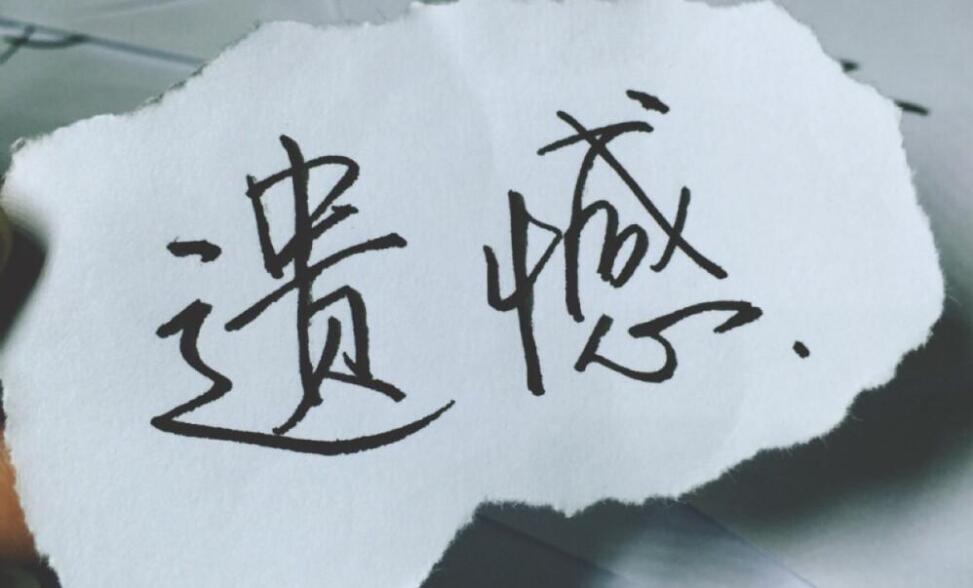 遗憾.